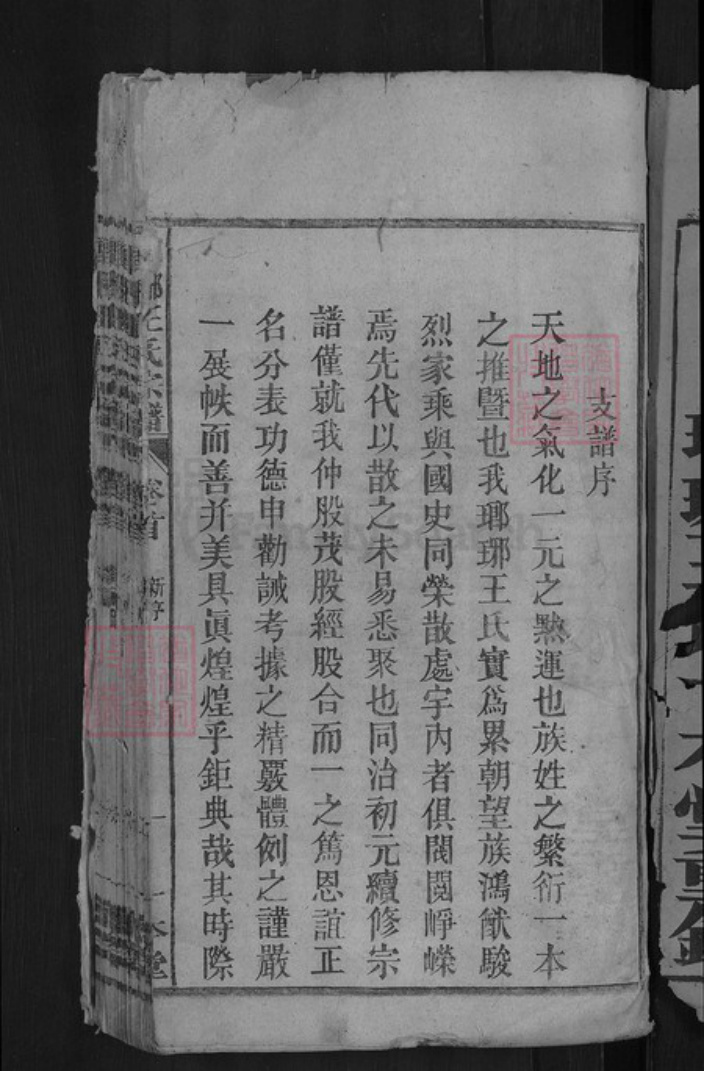 支譜序
天地之氣化一元之默運也族姓之繁衍一本
之推暨也我瑯琊王氏實爲累朝望族鴻猷駿
烈家乘與國史同榮散處宇內者俱閥閱崢嶸
焉先代以散之未易悉聚也同治初元續修宗
譜僅就我仲股茂股經股合而一之篤恩誼正
名分表功德申勸誡考據之精覈體例之謹嚴
一展帙而善并美具眞煌煌乎鉅典哉其時際
王氏宗譜
卷首
新序
一本堂
FamilySearch